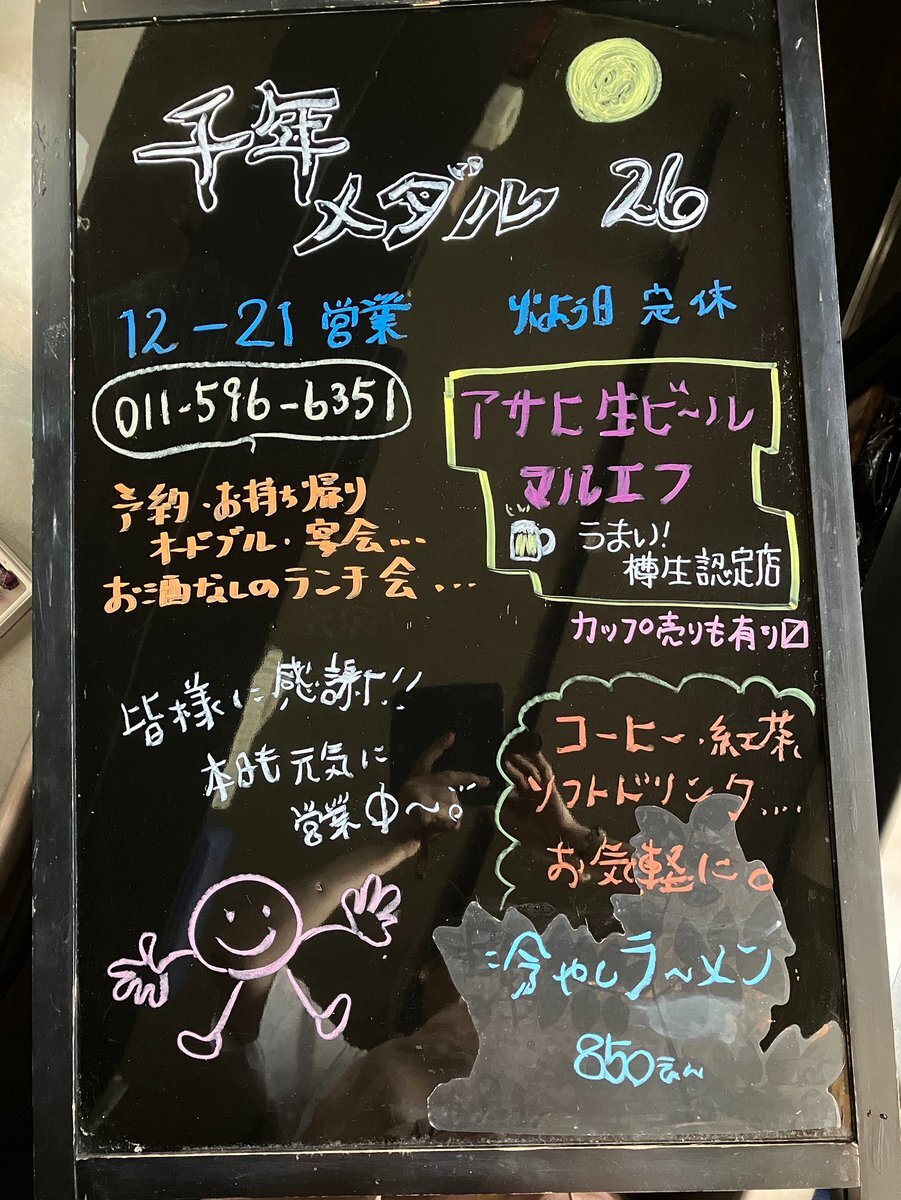 千年
メダル 26
12-21 営業
火よう日 定休
011-596-6351
アサヒ生ビール
マルエフ
うまい!
樽生認定店
カップ売りも有り〼
予約・お持ち帰り
オードブル・宴会...
お酒なしのランチ会...
皆様に感謝!!
本日も元気に
営業中〜。
コーヒー・紅茶
ソフトドリンク....
お気軽に。
冷やしラーメン
850えん